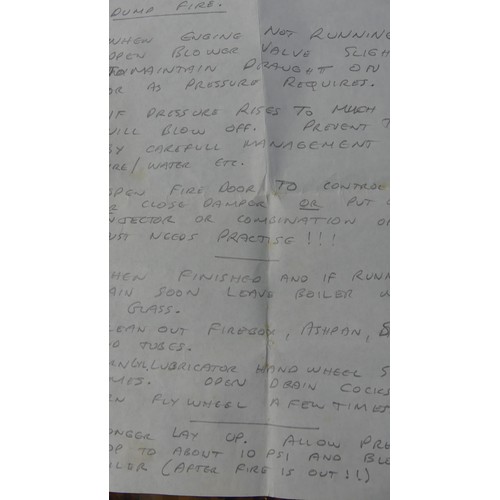 DUMP FIRE.
WHEN ENGINE NOT RUNNING
OPEN BLOWER VALVE SLIGH
TO MAINTAIN DRAUGHT ON
OR AS PRESSURE REQUIRES.
IF PRESSURE RISES TO MUCH
WILL BLOW OFF. PREVENT T
BY CAREFULL MANAGEMENT
IRE/ WATER ETC.
OPEN FIRE DOOR/ TO CONTROL
R CLOSE DAMPOR OR PUT O
INJECTOR OR COMBINATION O
UST NEEDS PRACTISE!!!
HEN FINISHED AND IF RUNN
AIN SOON LEAVE BOILER W
GLASS.
LEAN OUT FIREBOX, ASHPAN, &
D TUBES.
LUBRICATOR HAND WHEEL S
MES. OPEN DRAIN COCKS
N FLYWHEEL A FEW TIMES
ONGER LAY UP. ALLOW PRE
OP TO ABOUT 10 PSI AND BL
ILER (AFTER FIRE IS OUT!!)